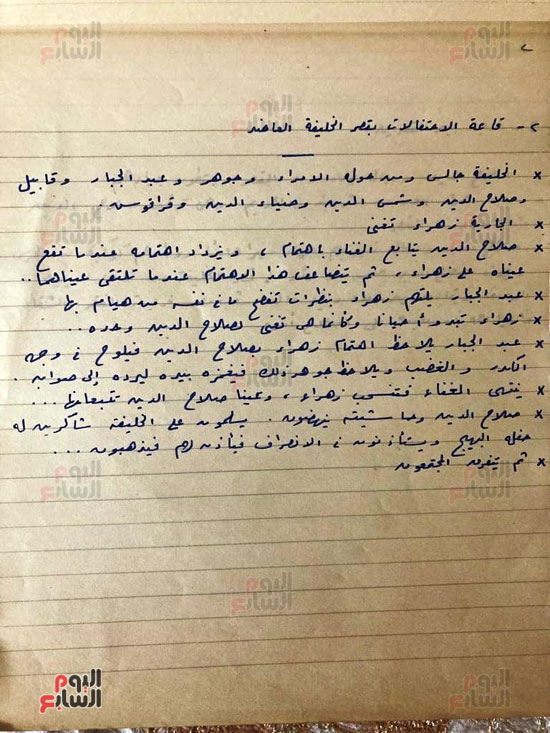 ٢
٢ - قاعة الاحتفالات بقصر الخليفة العاضد
* الخليفة جالس ومن حوله الامراء وجوهر وعبد الجبار وقابيل
وصلاح الدين وشمس الدين وضياء الدين وقراقوش.
* الجارية زهراء تغنى
* صلاح الدين يتابع الغناء باهتمام، ويزداد اهتمامه عندما تقع
عيناه على زهراء، ثم يتضاعف هذا الاهتمام عندما تلتقى عيناهما..
* عبد الجبار يلتهم زهراء بنظرات تفضح ما فى نفسه من هيام بها
* زهراء تبدو أحيانا وكأنما هى تغنى لصلاح الدين وحده...
* عبد الجبار يلاحظ اهتمام زهراء بصلاح الدين فيلوح فى وجهه
الكدر والغضب ويلاحظ جوهر ذلك فيغمزه بيده ليرده إلى صوابه.
* ينتهى الغناء فتنسحب زهراء، وعينا صلاح الدين تتبعانها...
* صلاح الدين وحاشيته ينهضون. يسلمون على الخليفة شاكرين له
حفله البهيج ويستأذنون فى الانصراف فيأذن لهم فيذهبون...
* ثم يتفرق المجتمعون
اليوم السابع
اليوم السابع
اليوم السابع
اليوم السابع
اليوم السابع
اليوم السابع
اليوم السابع
اليوم السابع